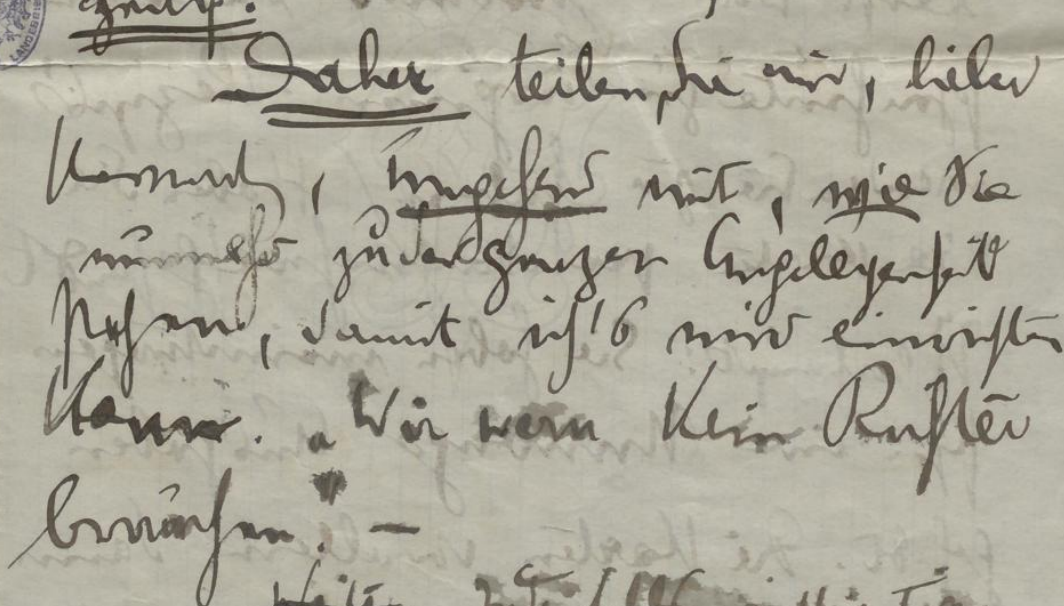 Daher teilen Sie mir, lieber
umgehend mit, wie Sie
nunmehr zu der ganzen Angelegenheit
stehen, damit ich's mir einrichten
kann. „Wir wern kein Richter
brauchen." —